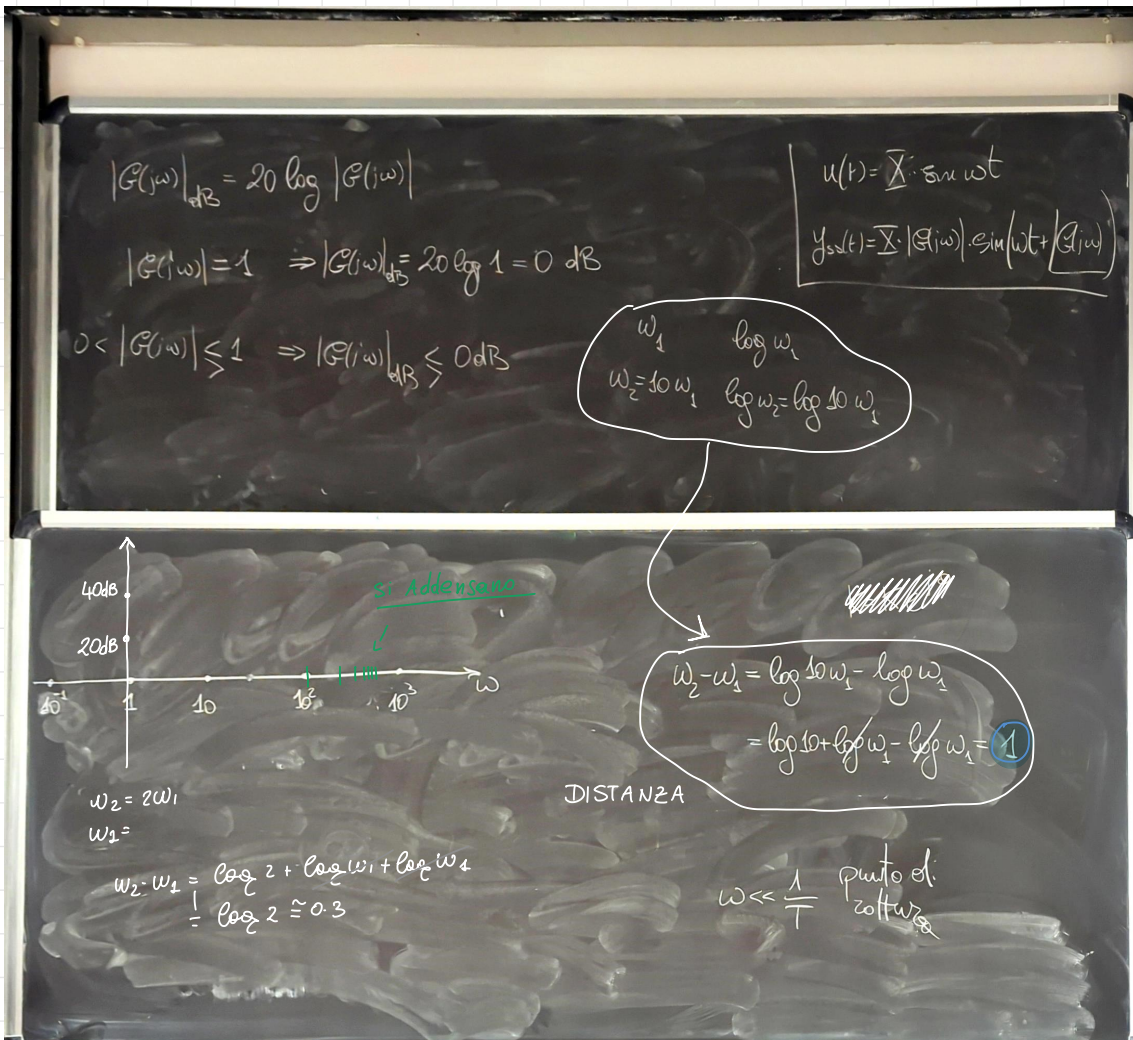 |G(jω)|_dB = 20 log |G(jω)|
|G(jω)| = 1 ⇒ |G(jω)|_dB = 20 log 1 = 0 dB
0 < |G(jω)| ≶ 1 ⇒ |G(jω)|_dB ≶ 0 dB
u(t) = X · sin ωt
y_ss(t) = X · |G(jω)| · sin(ωt + ∠G(jω))
ω₁ log ω₁
ω₂ = 10 ω₁ log ω₂ = log 10 ω₁
40dB
20dB
Si Addensano
10⁻¹ 1 10 10² 10³ ω
ω₂-ω₁ = log 10ω₁ - log ω₁
= log 10 + log ω₁ - log ω₁ = 1
DISTANZA
ω₂ = 2ω₁
ω₁ =
ω₂-ω₁ = log 2 + log ω₁ + log ω₁
= log 2 ≅ 0.3
ω << 1/T punto di
rottura